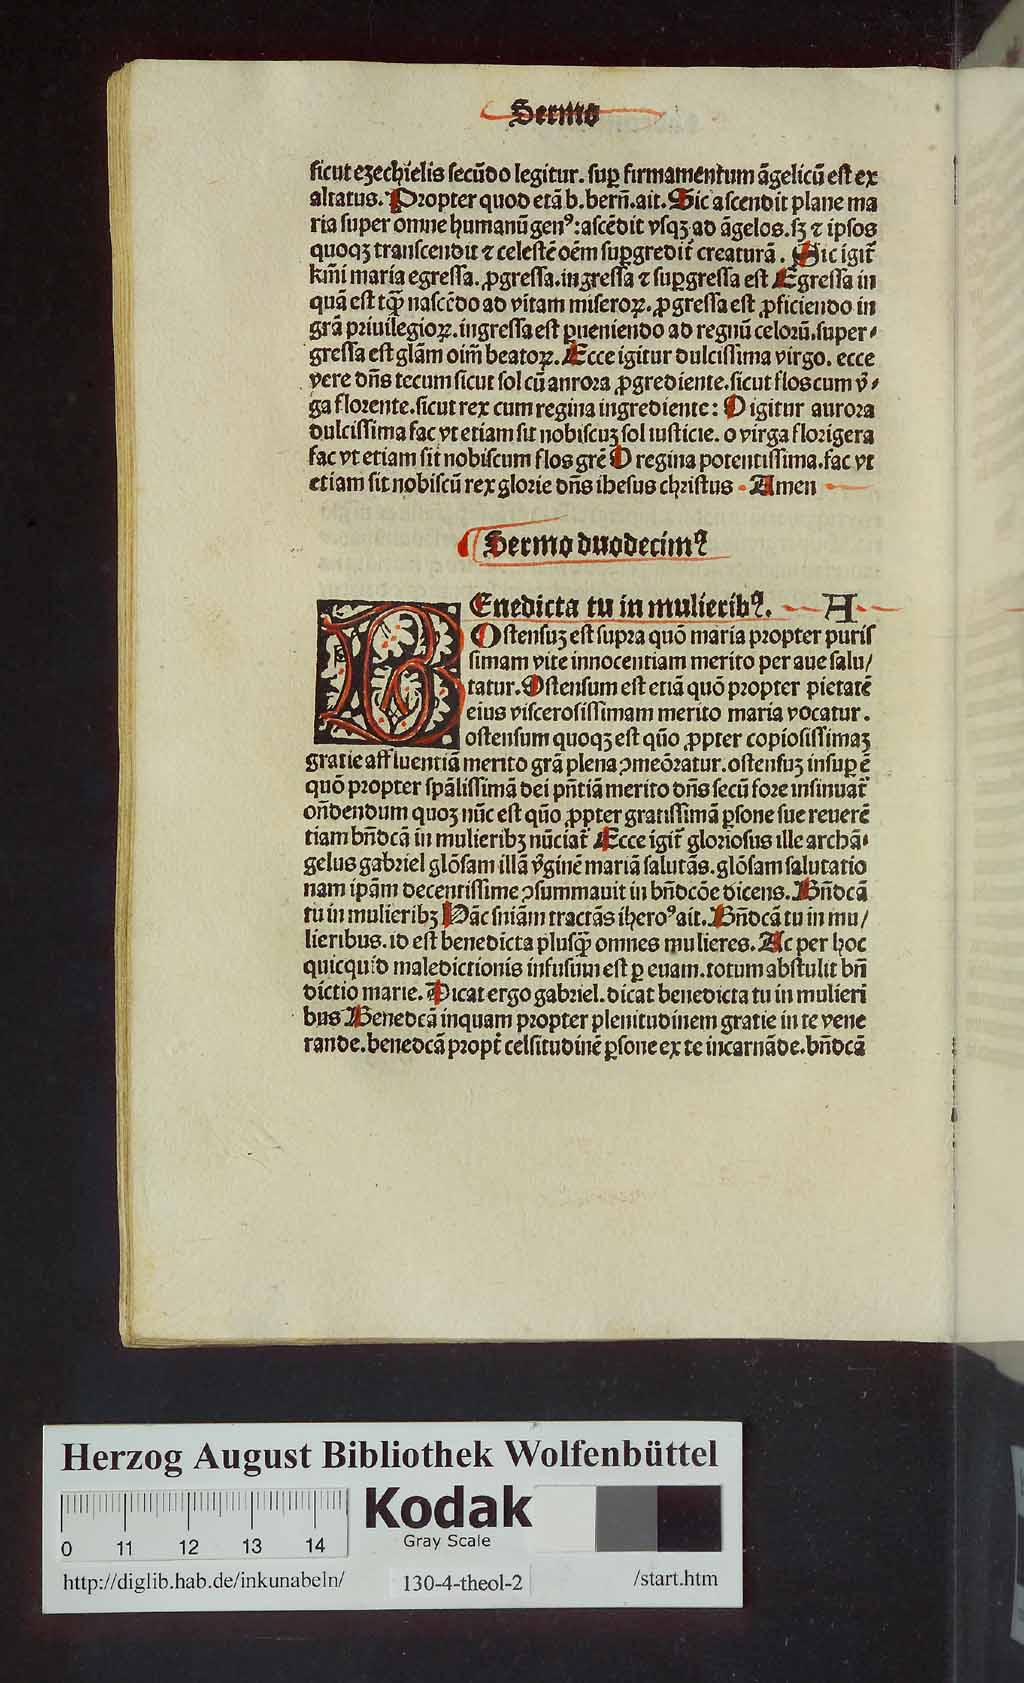 Sermo
sicut ezechielis secūdo legitur. suꝑ firmamentum āgelicū est ex
altatus. Propter quod etā b. berñ. ait. Sic ascendit plane ma
ria super omne humanū genꝰ: ascēdit vsqꝫ ad āgelos. sꝫ ⁊ ipsos
quoqꝫ transcendit ⁊ celestē oēm suꝑgredit᷑ creaturā. Sic igit᷑
km̄i maria egressa. ꝓgressa. ingressa ⁊ suꝑgressa est Egressa in
quā est tꝙ̄ nascēdo ad vitam miseroꝝ. ꝓgressa est ꝓficiendo in
grā priuilegioꝝ. ingressa est ꝑueniendo ad regnū celorū. super⸗
gressa est glām oim̄ beatoꝝ. Ecce igitur dulcissima virgo. ecce
vere dn̄s tecum sicut sol cū anrora ꝓgrediente. sicut flos cum v̄⸗
ga florente. sicut rex cum regina ingrediente: O igitur aurora
dulcissima fac vt etiam sit nobiscuꝫ sol iusticie. o virga florigera
fac vt etiam sit nobiscum flos grē O regina potentissima. fac vt
etiam sit nobiscū rex glorie dn̄s ihesus christus · Amen
Sermo duodecimꝰ
BEnedicta tu in mulieribꝰ. A
Ostensuꝫ est supra quō maria propter puris
simam vite innocentiam merito per aue salu/
tatur. Ostensum est etiā quō propter pietatē
eius viscerosissimam merito maria vocatur.
ostensum quoqꝫ est quō ꝓpter copiosissimaꝫ
gratie affluentiā merito grā plena ꝯmeōratur. ostensuꝫ insuꝑ ē
quō propter spālissimā dei pn̄tiā merito dn̄s secū fore insinuat᷑
on̄dendum quoꝫ nūc est quō ꝓpter gratissimā ꝑsone sue reuerē
tiam bn̄dcā in mulieribꝫ nūciat᷑ Ecce igit᷑ gloriosus ille archā⸗
gelus gabriel glōsam illā v̄ginē mariā salutās. glōsam salutatio
nam ipām decentissime ꝯsummauit in bn̄dcōe dicens. Bn̄dcā
tu in mulieribꝫ Hāc sniām tractās iheroꝰ ait. Bn̄dcā tu in mu/
lieribus. id est benedicta plusꝙ̄ omnes mulieres. Ac per hoc
quicquid maledictionis infusum est ꝑ euam. totum abstulit bn̄
dictio marie. Dicat ergo gabriel. dicat benedicta tu in mulieri
bus Benedcā inquam propter plenitudinem gratie in te vene
rande. benedcā propt᷑ celsitudinē ꝑsone ex te incarnāde. bn̄dcā
Herzog August Bibliothek Wolfenbüttel
Kodak
Gray Scale
0 11 12 13 14
http://diglib.hab.de/inkunabeln/ 130-4-theol-2 /start.htm